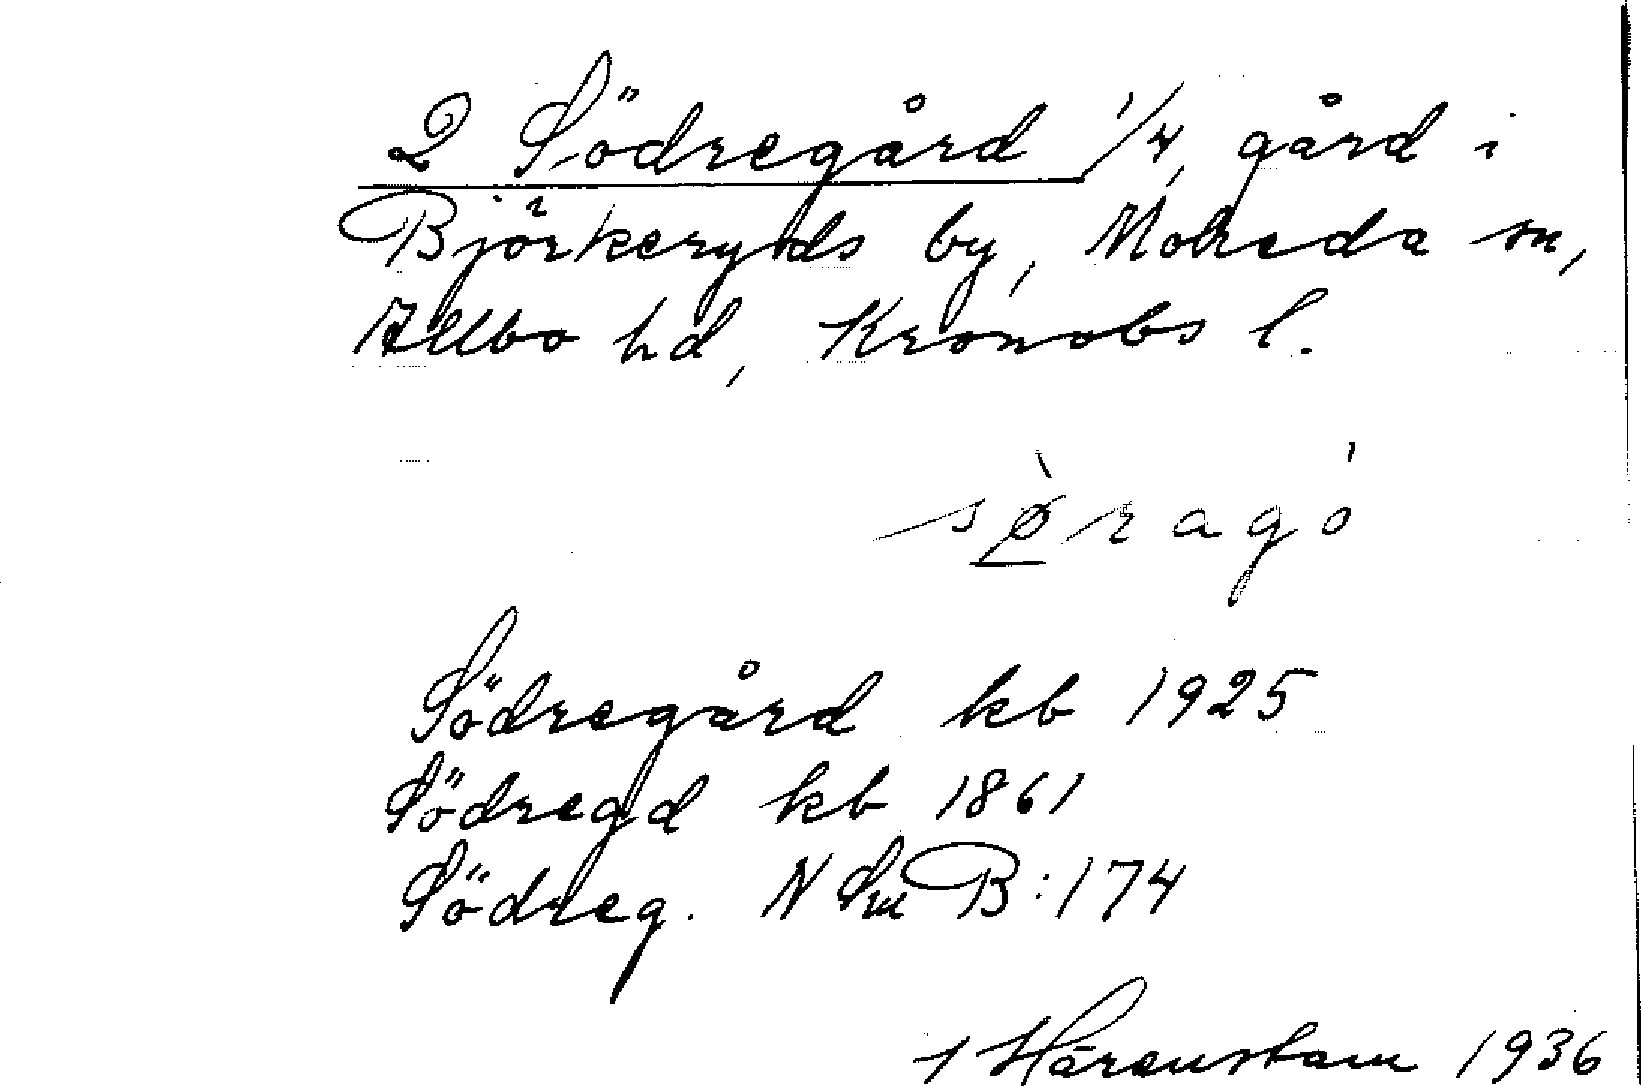 2 Södregård 1/4, gård i
Björkeryds by, Moheda sn,
Allbo hd, Kronobs l.
sø̀ragó
Södregård kb 1925
Södregd kb 1861
Södreg. N Sm B:174
Härenstam 1936